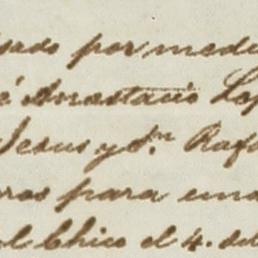 sado por medi
é Anastacio Lop
Jesus y d.n Rafa
ros para una
el Chico el 4. del